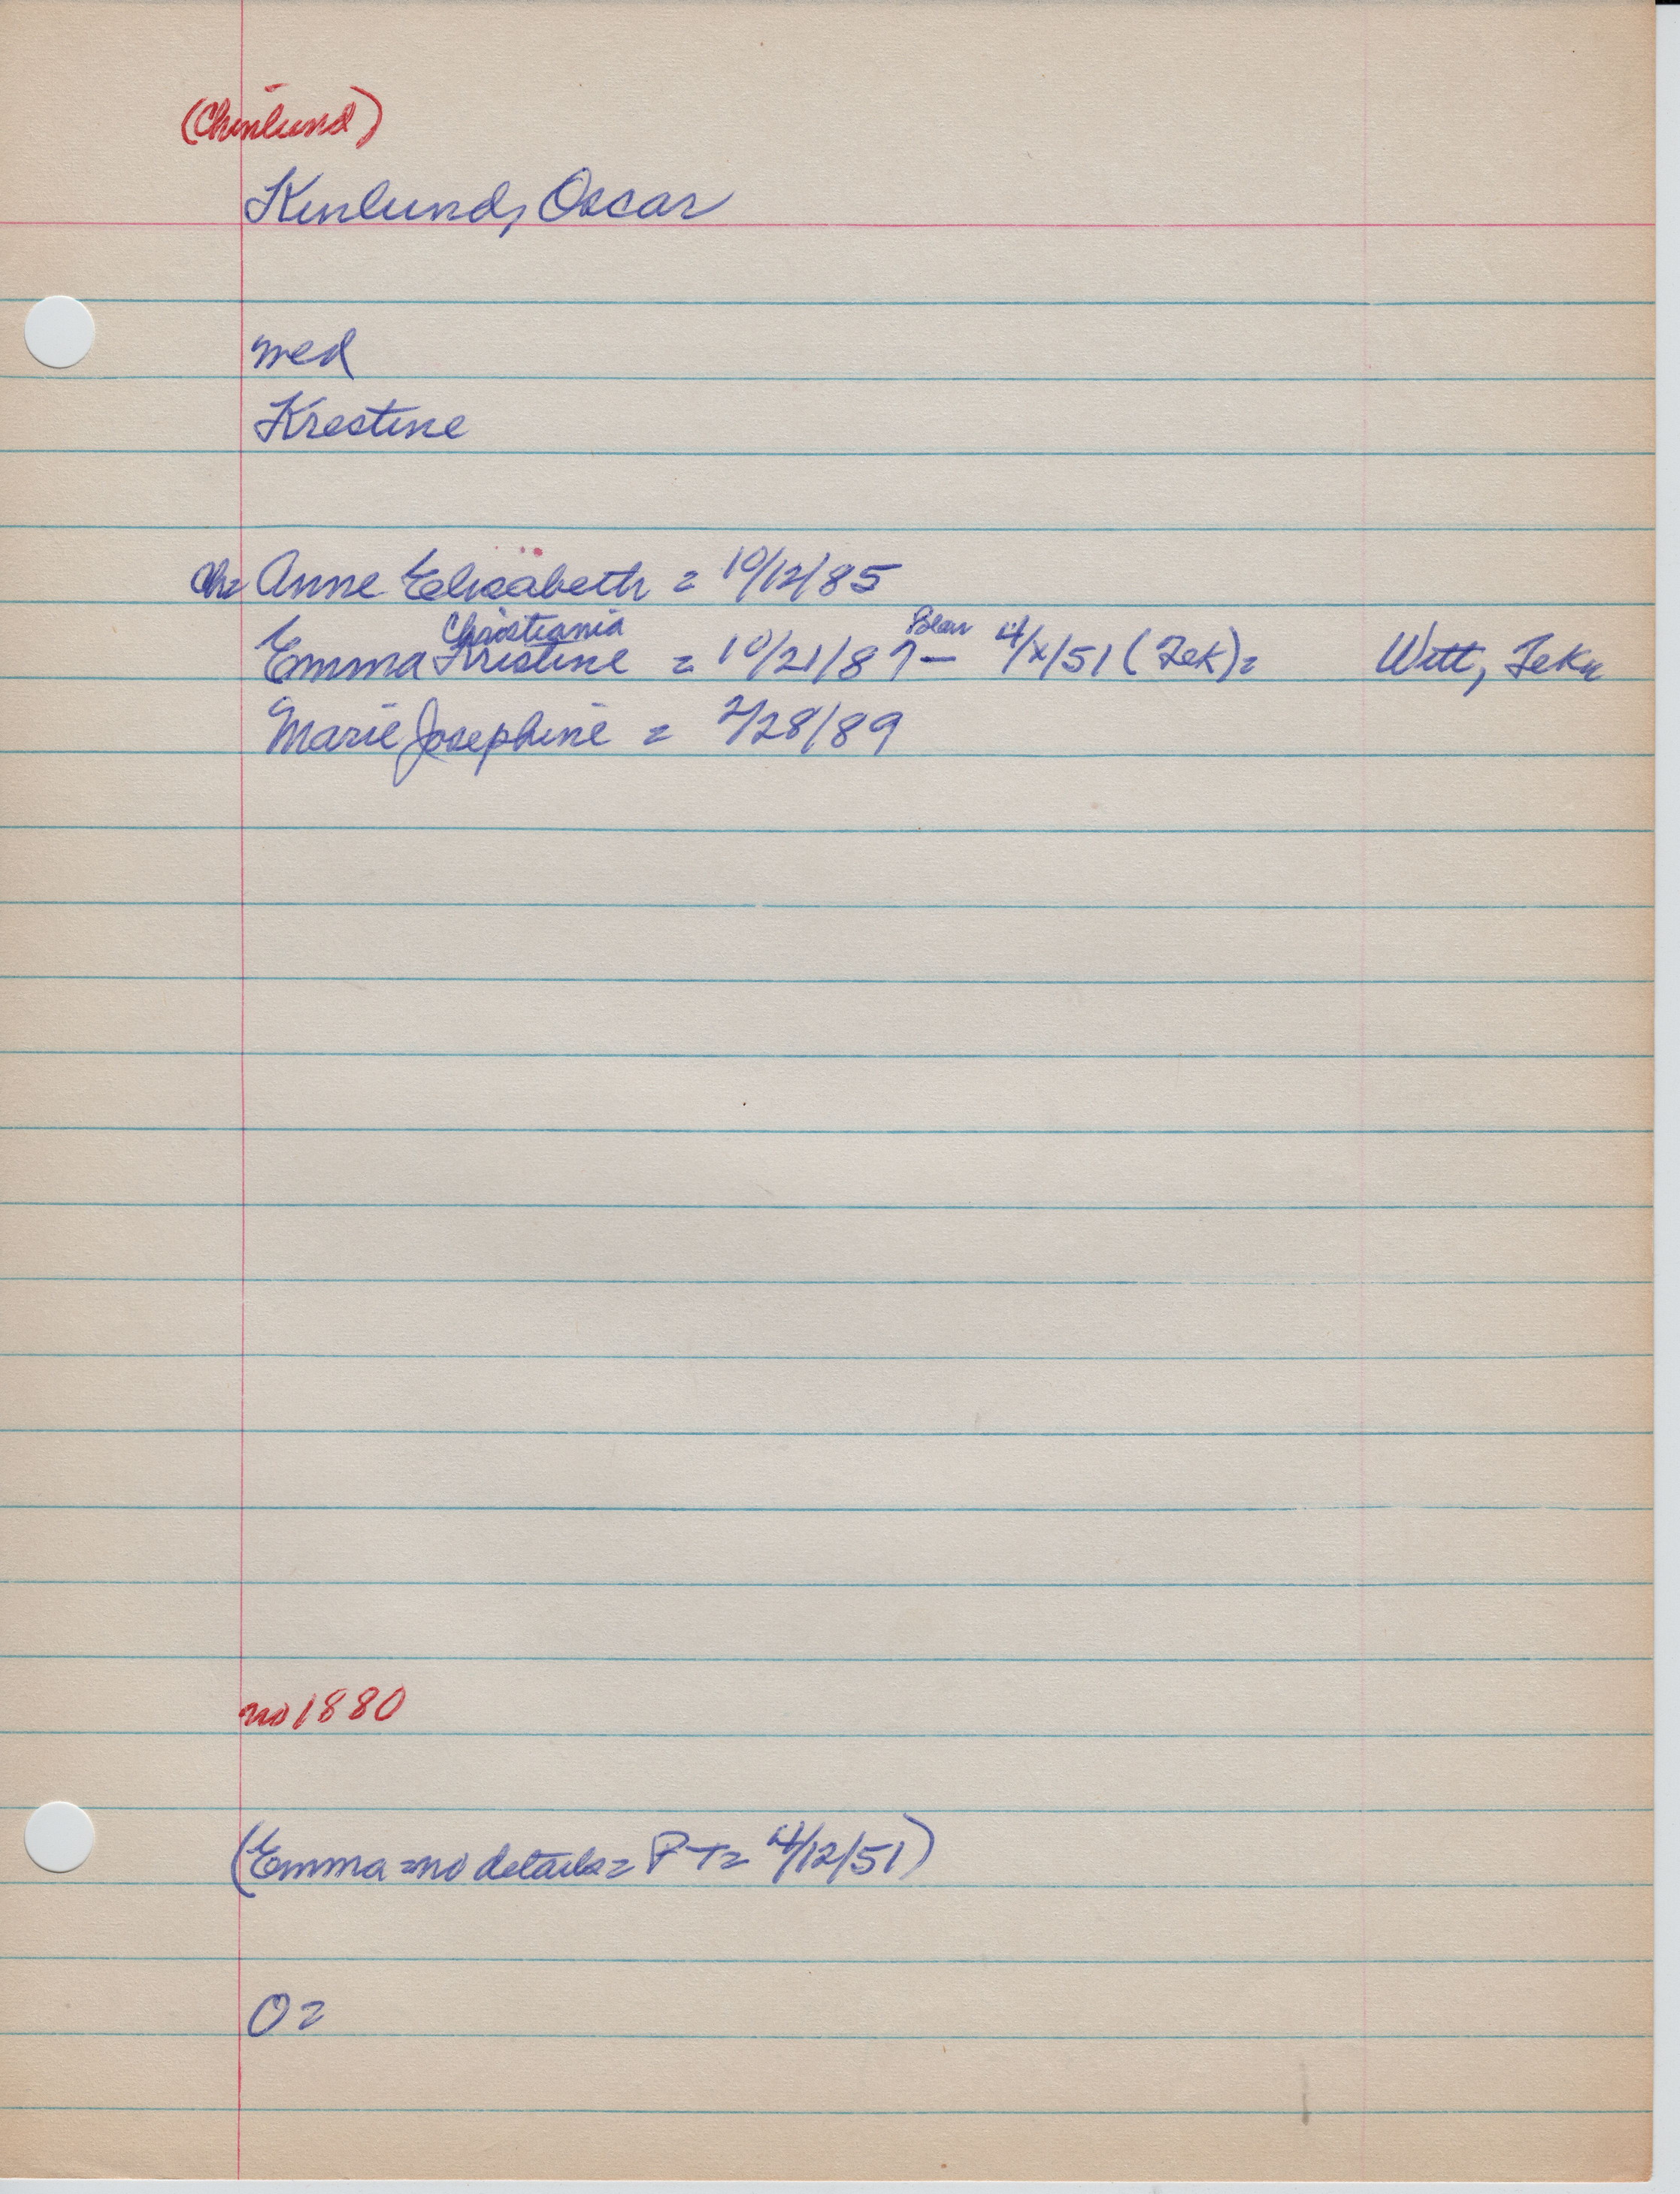 (Chinlund)
Kinlund, Oscar
med
Kristine
ch= Anne Elisabeth = 10/12/85
Christiania
Emma Kristine = 10/21/87 - 4/x/51 (Tek)= Witt,
Marie Josephine = 2/28/89
no 1880
(Emma = no details = PT= 4/12/51)
O=